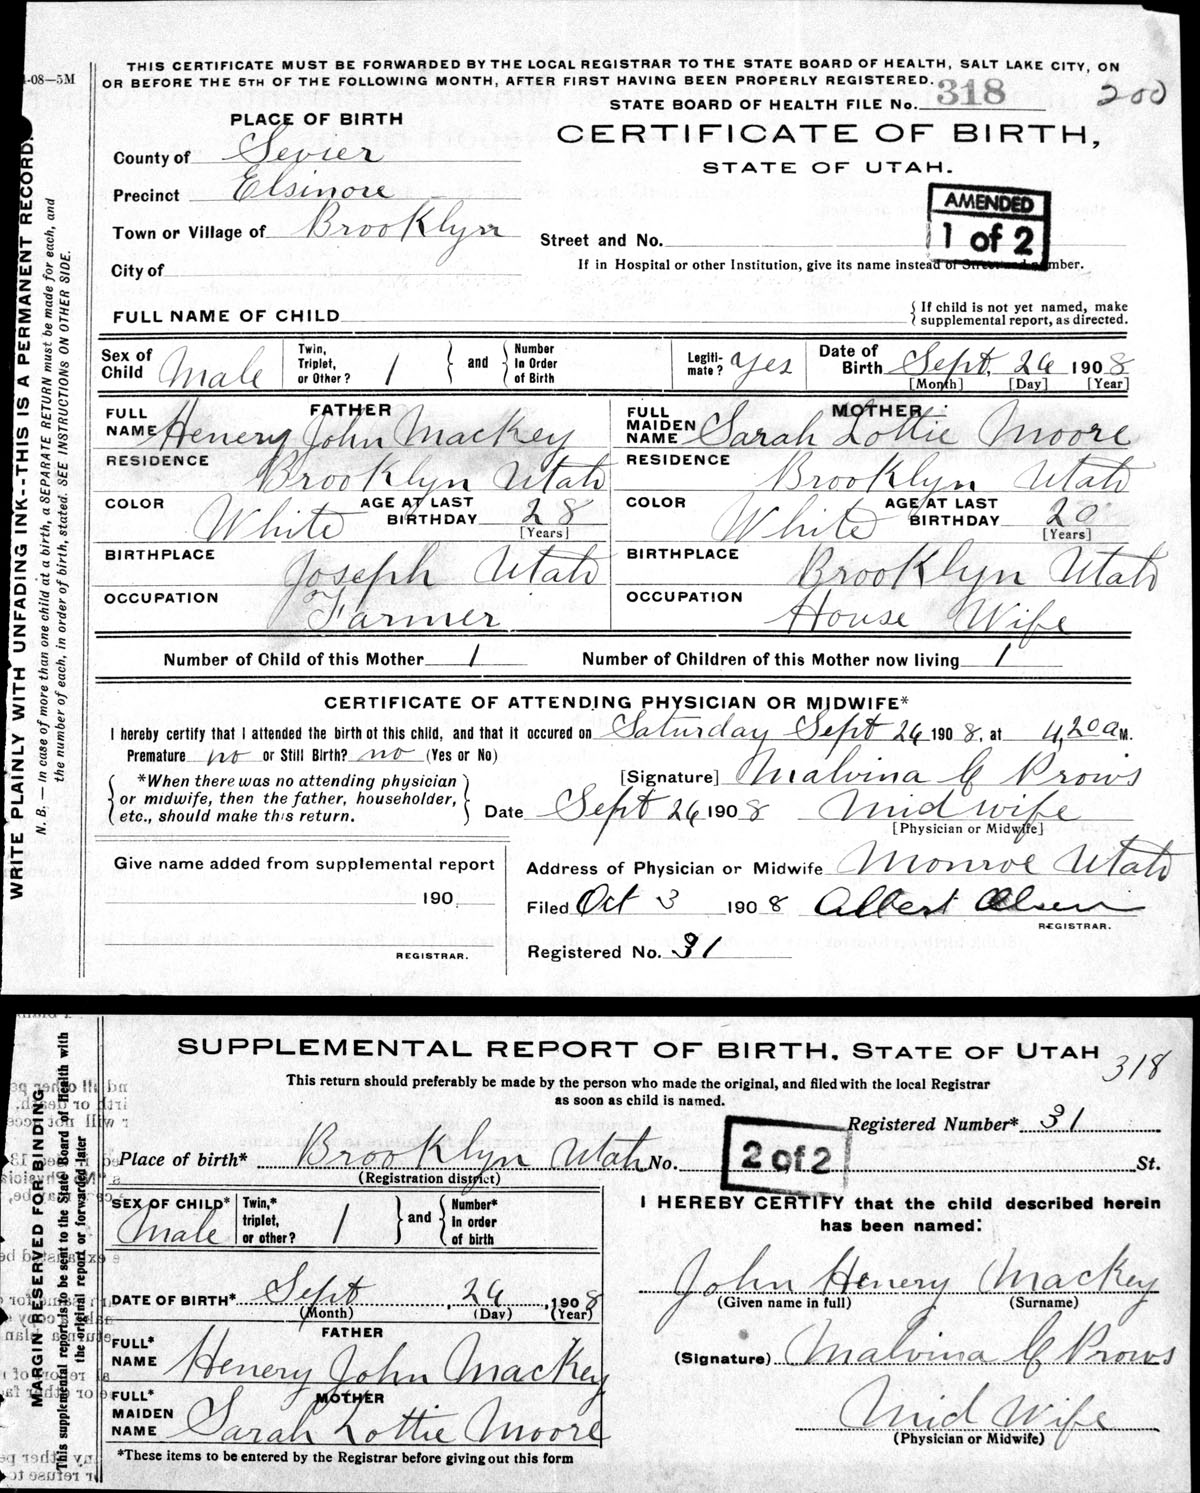 1-08—5M
THIS CERTIFICATE MUST BE FORWARDED BY THE LOCAL REGISTRAR TO THE STATE BOARD OF HEALTH, SALT LAKE CITY, ON
OR BEFORE THE 5TH OF THE FOLLOWING MONTH, AFTER FIRST HAVING BEEN PROPERLY REGISTERED.
STATE BOARD OF HEALTH FILE No. 318 200
PLACE OF BIRTH
CERTIFICATE OF BIRTH,
STATE OF UTAH.
County of Sevier
Precinct Elsinore
Town or Village of Brooklyn
City of
AMENDED
1 of 2
Street and No.
If in Hospital or other Institution, give its name instead of Street and number.
FULL NAME OF CHILD
{ If child is not yet named, make
supplemental report, as directed.
Sex of Child Male
Twin, Triplet, or Other? 1 } and { Number In Order of Birth
Legiti-mate? Yes
Date of Birth Sept. 26 1908
[Month] [Day] [Year]
FATHER
FULL NAME Henery John Mackey
RESIDENCE Brooklyn Utah
COLOR White AGE AT LAST BIRTHDAY 28
[Years]
BIRTHPLACE Joseph Utah
OCCUPATION Farmer
MOTHER
FULL MAIDEN NAME Sarah Lottie Moore
RESIDENCE Brooklyn Utah
COLOR White AGE AT LAST BIRTHDAY 20
[Years]
BIRTHPLACE Brooklyn Utah
OCCUPATION House Wife
Number of Child of this Mother 1 Number of Children of this Mother now living 1
CERTIFICATE OF ATTENDING PHYSICIAN OR MIDWIFE*
I hereby certify that I attended the birth of this child, and that it occured on Saturday Sept 26 1908, at 4,20 a M.
Premature no or Still Birth? no (Yes or No)
{ *When there was no attending physician
or midwife, then the father, householder,
etc., should make this return. }
[Signature] Malvina C Prows
Date Sept 26 1908 Midwife
[Physician or Midwife]
Give name added from supplemental report
190
REGISTRAR.
Address of Physician or Midwife Monroe Utah
Filed Oct 3 1908 Albert Olsen
REGISTRAR.
Registered No. 31
WRITE PLAINLY WITH UNFADING INK--THIS IS A PERMANENT RECORD.
N. B. — In case of more than one child at a birth, a SEPARATE RETURN must be made for each, and
the number of each, in order of birth, stated. SEE INSTRUCTIONS ON OTHER SIDE.
SUPPLEMENTAL REPORT OF BIRTH, STATE OF UTAH 318
This return should preferably be made by the person who made the original, and filed with the local Registrar
as soon as child is named.
Registered Number* 31
Place of birth* Brooklyn Utah No. St.
(Registration district)
2 of 2
SEX OF CHILD* Male
Twin,* triplet, or other? 1 } and { Number* In order of birth
DATE OF BIRTH* Sept 26, 1908
(Month) (Day) (Year)
FATHER
FULL* NAME Henery John Mackey
MOTHER
FULL* MAIDEN NAME Sarah Lottie Moore
*These items to be entered by the Registrar before giving out this form
I HEREBY CERTIFY that the child described herein
has been named:
John Henery Mackey
(Given name in full) (Surname)
(Signature) Malvina C Prows
Mid Wife
(Physician or Midwife)
MARGIN RESERVED FOR BINDING
This supplemental report is to be sent to the State Board of Health with
the original report or forwarded later